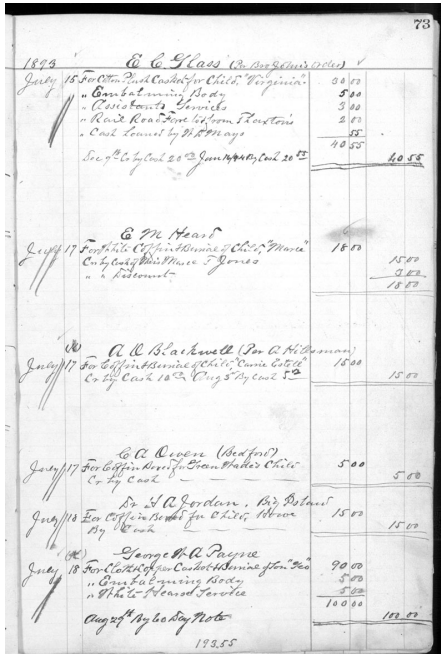 73
1893 E C Glass (Per Bro John's order)
July 15 For Coton Plush Casket for Child, "Virginia" 30 00
" Embalming Body 5 00
" Assistants Services 3 00
" Rail Road Fare to & from Thaxton's 2 00
" Cash Loaned by W D Mays 55
40 55
Dec 9th Cr by Cash 20 00 Jan 16/94 By Cash 20 55 40 55
E M Heard
July 17 For White Coffin & Burial of Child, "Marce" 18 00
Cr by Cash of Miss Marce T Jones 15 00
" " Discount 3 00
18 00
A D Blackwell (Per A Hillsman)
July 17 For Coffin & Burial of Child, "Carrie Estell" 15 00
Cr by Cash 10 00 Aug 5 By Cash 5 00 15 00
C A Owen (Bedford)
July 17 For Coffin Box for Green Wade's Child 5 00
Cr by Cash 5 00
Dr S A Jordan, Big Island
July 18 For Coffin Box for Child, 15 00
By Cash 15 00
George W A Payne
July 18 For Cloth Casket & Burial of Son "Geo" 90 00
" Embalming Body 5 00
" White Hearse Service 5 00
100 00
Aug 29th By 60 Day Note 100 00
193.55